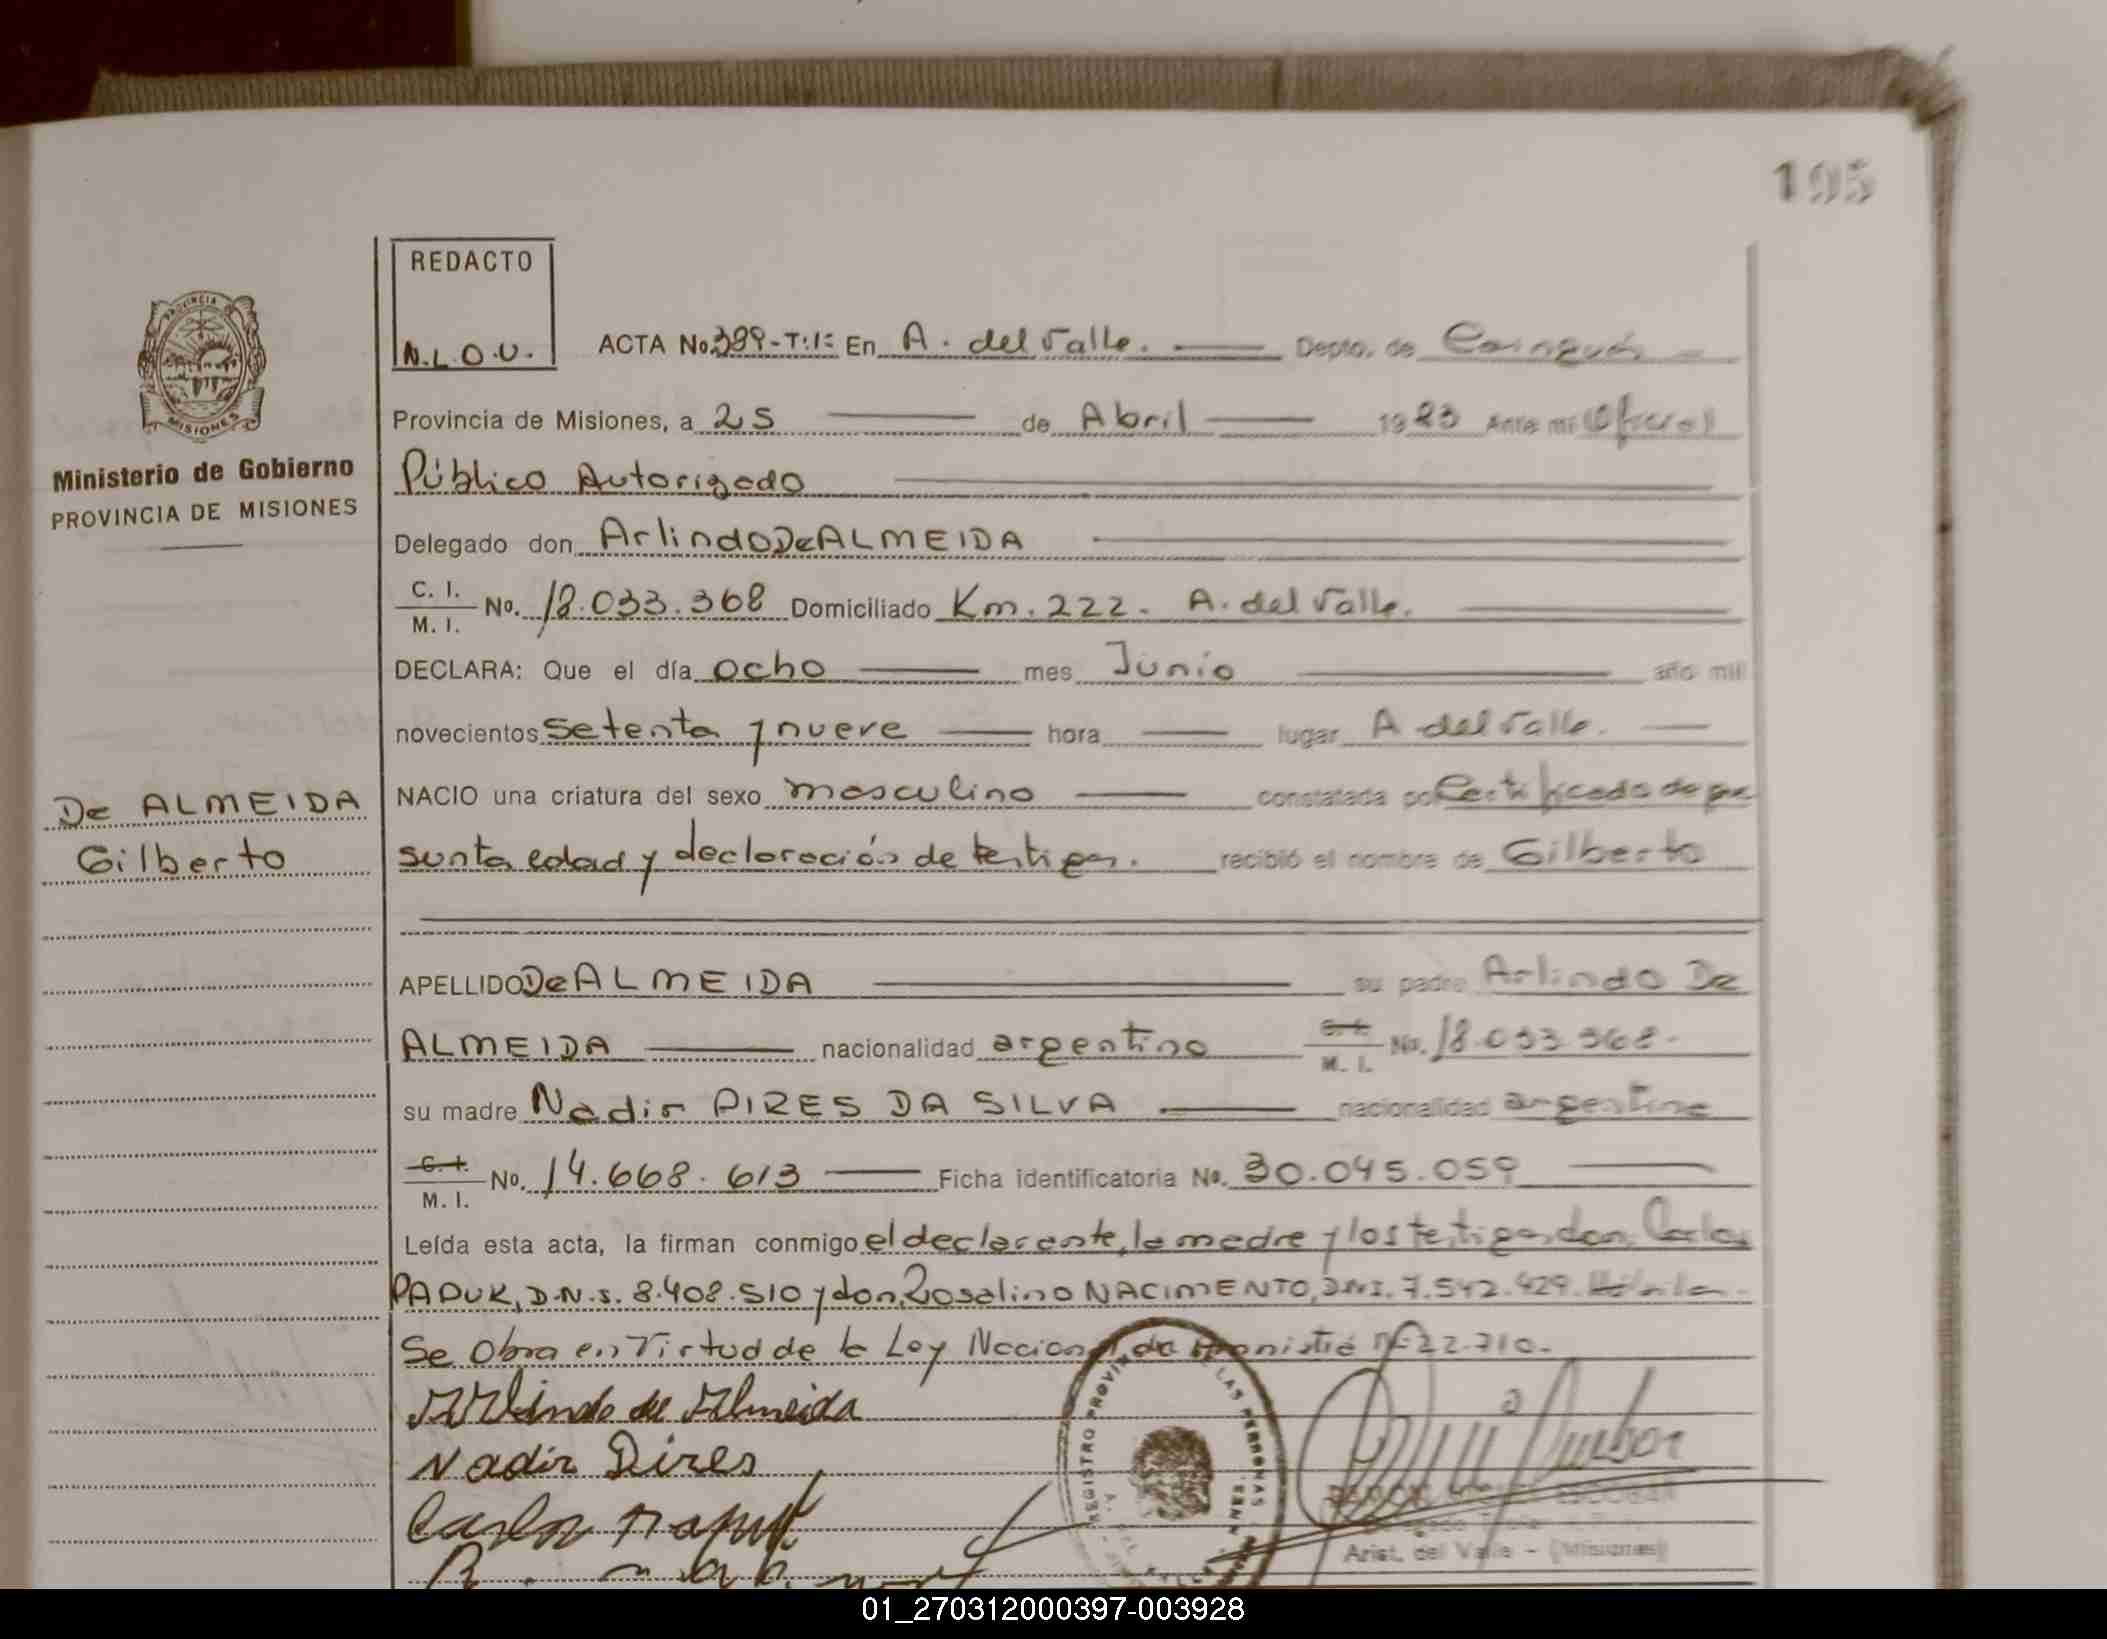 195
REDACTO
N.L.O.U.
ACTA No. 399-T:1: En A. del Valle. Depto. de Cainguás
Provincia de Misiones, a 25 de Abril 1983 Ante mi Oficial
Público Autorizado
Delegado don Arlindo De ALMEIDA
C. I.
M. I. No. 18.033.368 Domiciliado Km. 222. A. del Valle.
DECLARA: Que el día ocho mes Junio año mil
novecientos setenta y nueve hora lugar A del Valle.
NACIO una criatura del sexo masculino constatada por Certificado de pre
sunta edad y declaración de testigos. recibió el nombre de Gilberto
APELLIDO De ALMEIDA su padre Arlindo De
ALMEIDA nacionalidad argentino C. I. M. I. No. 18.033.368.
su madre Nadir PIRES DA SILVA nacionalidad argentina
C. I.
M. I. No. 14.668.613 Ficha identificatoria No. 30.045.059
Leída esta acta, la firman conmigo el declarante, la madre y los testigos don Carlos
PADUK, D.N.I. 8.408.510 y don Rosalino NACIMENTO, D.N.I. 7.542.429.
Se Obra en Virtud de la Ley Nacional de Amnistía Nº 22.710.
Arlindo de Almeida
Nadir Pires
Carlos
REGISTRO PROVIN LAS PERSONAS
Arist. del Valle - (Misiones)
PROVINCIA
MISIONES
Ministerio de Gobierno
PROVINCIA DE MISIONES
De ALMEIDA
Gilberto
01_270312000397-003928